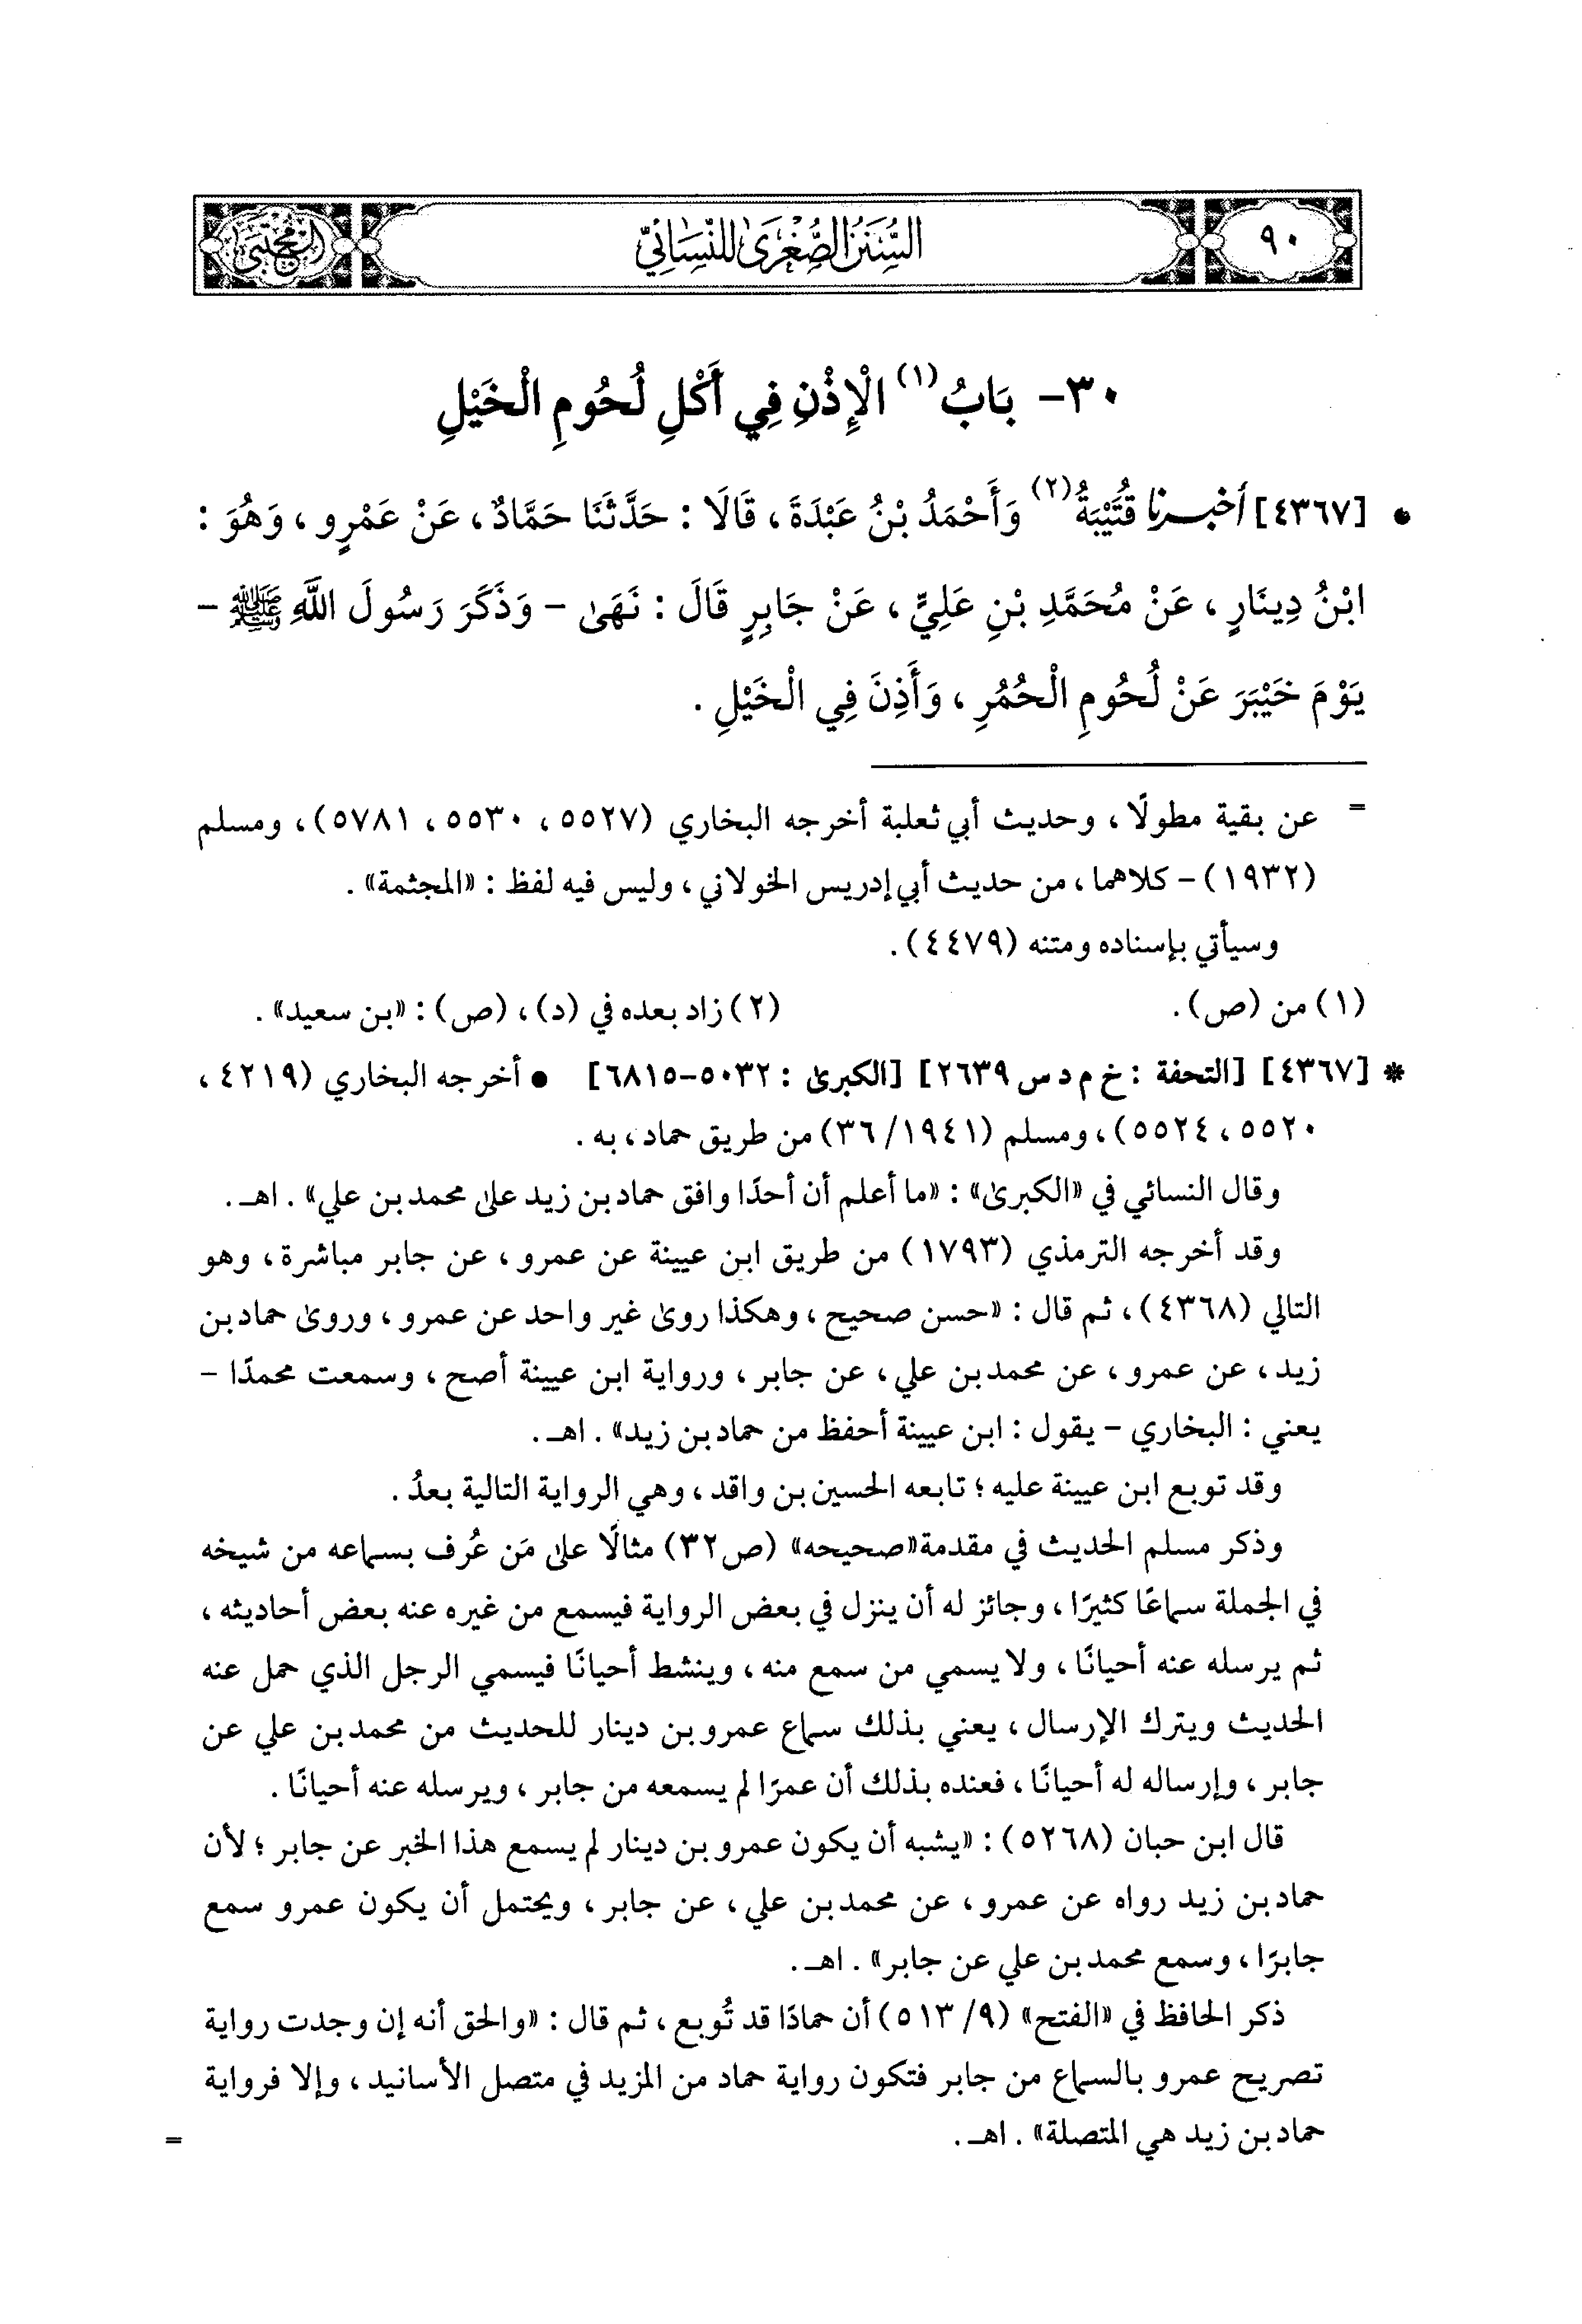 ٩٠
السُّنَنُ الصُّغْرَىٰ لِلنَّسَائِيِّ
المجتبى
٣٠- بَابُ (١) الْإِذْنِ فِي أَكْلِ لُحُومِ الْخَيْلِ
• [٤٣٦٧] أخبرنا قُتَيْبَةُ (٢) وَأَحْمَدُ بْنُ عَبْدَةَ، قَالَا : حَدَّثَنَا حَمَّادٌ، عَنْ عَمْرٍو، وَهُوَ :
ابْنُ دِينَارٍ، عَنْ مُحَمَّدِ بْنِ عَلِيٍّ، عَنْ جَابِرٍ قَالَ : نَهَىٰ - وَذَكَرَ رَسُولَ اللَّهِ ﷺ -
يَوْمَ خَيْبَرَ عَنْ لُحُومِ الْحُمُرِ، وَأَذِنَ فِي الْخَيْلِ .
= عن بقية مطولًا، وحديث أبي ثعلبة أخرجه البخاري (٥٥٢٧، ٥٥٣٠، ٥٧٨١)، ومسلم
(١٩٣٢) - كلاهما، من حديث أبي إدريس الخولاني، وليس فيه لفظ : «المجثمة» .
وسيأتي بإسناده ومتنه (٤٤٧٩) .
(١) من (ص). (٢) زاد بعده في (د)، (ص) : «بن سعيد» .
* [٤٣٦٧] [التحفة : خ م د س ٢٦٣٩] [الكبرىٰ : ٥٠٣٢-٦٨١٥] • أخرجه البخاري (٤٢١٩،
٥٥٢٠، ٥٥٢٤)، ومسلم (١٩٤١/ ٣٦) من طريق حماد، به .
وقال النسائي في «الكبرىٰ» : «ما أعلم أن أحدًا وافق حماد بن زيد علىٰ محمد بن علي» . اهـ .
وقد أخرجه الترمذي (١٧٩٣) من طريق ابن عيينة عن عمرو، عن جابر مباشرة، وهو
التالي (٤٣٦٨)، ثم قال : «حسن صحيح، وهكذا روىٰ غير واحد عن عمرو، وروىٰ حماد بن
زيد، عن عمرو، عن محمد بن علي، عن جابر، ورواية ابن عيينة أصح، وسمعت محمدًا -
يعني : البخاري - يقول : ابن عيينة أحفظ من حماد بن زيد» . اهـ .
وقد توبع ابن عيينة عليه؛ تابعه الحسين بن واقد، وهي الرواية التالية بعدُ .
وذكر مسلم الحديث في مقدمة «صحيحه» (ص٣٢) مثالًا علىٰ مَن عُرف بسماعه من شيخه
في الجملة سماعًا كثيرًا، وجائز له أن ينزل في بعض الرواية فيسمع من غيره عنه بعض أحاديثه،
ثم يرسله عنه أحيانًا، ولا يسمي من سمع منه، وينشط أحيانًا فيسمي الرجل الذي حمل عنه
الحديث ويترك الإرسال، يعني بذلك سماع عمرو بن دينار للحديث من محمد بن علي عن
جابر، وإرساله له أحيانًا، فعنده بذلك أن عمرًا لم يسمعه من جابر، ويرسله عنه أحيانًا .
قال ابن حبان (٥٢٦٨) : «يشبه أن يكون عمرو بن دينار لم يسمع هذا الخبر عن جابر؛ لأن
حماد بن زيد رواه عن عمرو، عن محمد بن علي، عن جابر، ويحتمل أن يكون عمرو سمع
جابرًا، وسمع محمد بن علي عن جابر» . اهـ .
ذكر الحافظ في «الفتح» (٩/ ٥١٣) أن حمادًا قد تُوبع، ثم قال : «والحق أنه إن وجدت رواية
تصريح عمرو بالسماع من جابر فتكون رواية حماد من المزيد في متصل الأسانيد، وإلا فرواية
حماد بن زيد هي المتصلة» . اهـ . =